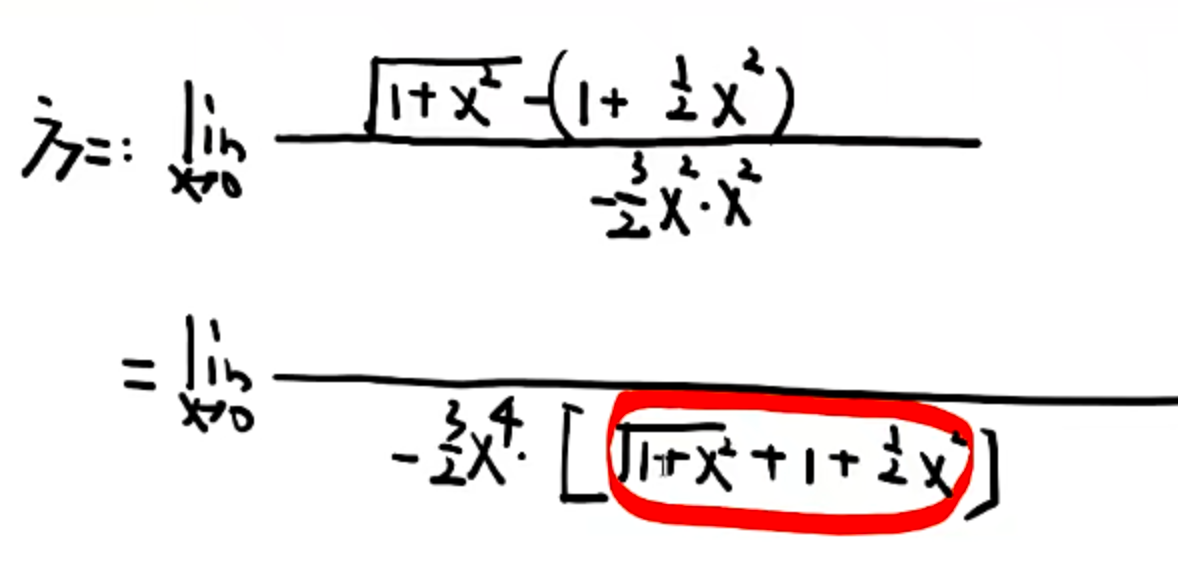 原式=: lim x→0 (√(1+x²) - (1 + 1/2 x²)) / (-3/2 x² · x²)
= lim x→0 / (-3/2 x⁴ · [√(1+x²) + 1 + 1/2 x²])